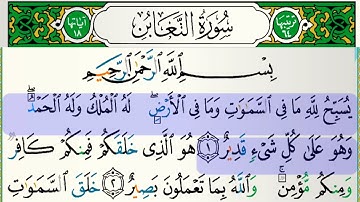 ترتيبها ٦٤
سُورَةُ التَّغَابُنِ
آياتها ١٨
بِسْمِ اللَّهِ الرَّحْمَٰنِ الرَّحِيمِ
يُسَبِّحُ لِلَّهِ مَا فِي السَّمَٰوَٰتِ وَمَا فِي الْأَرْضِ ۖ لَهُ الْمُلْكُ وَلَهُ الْحَمْدُ ۖ
وَهُوَ عَلَىٰ كُلِّ شَيْءٍ قَدِيرٌ ١ هُوَ الَّذِي خَلَقَكُمْ فَمِنكُمْ كَافِرٌ
وَمِنكُم مُّؤْمِنٌ ۚ وَاللَّهُ بِمَا تَعْمَلُونَ بَصِيرٌ ٢ خَلَقَ السَّمَٰوَٰتِ